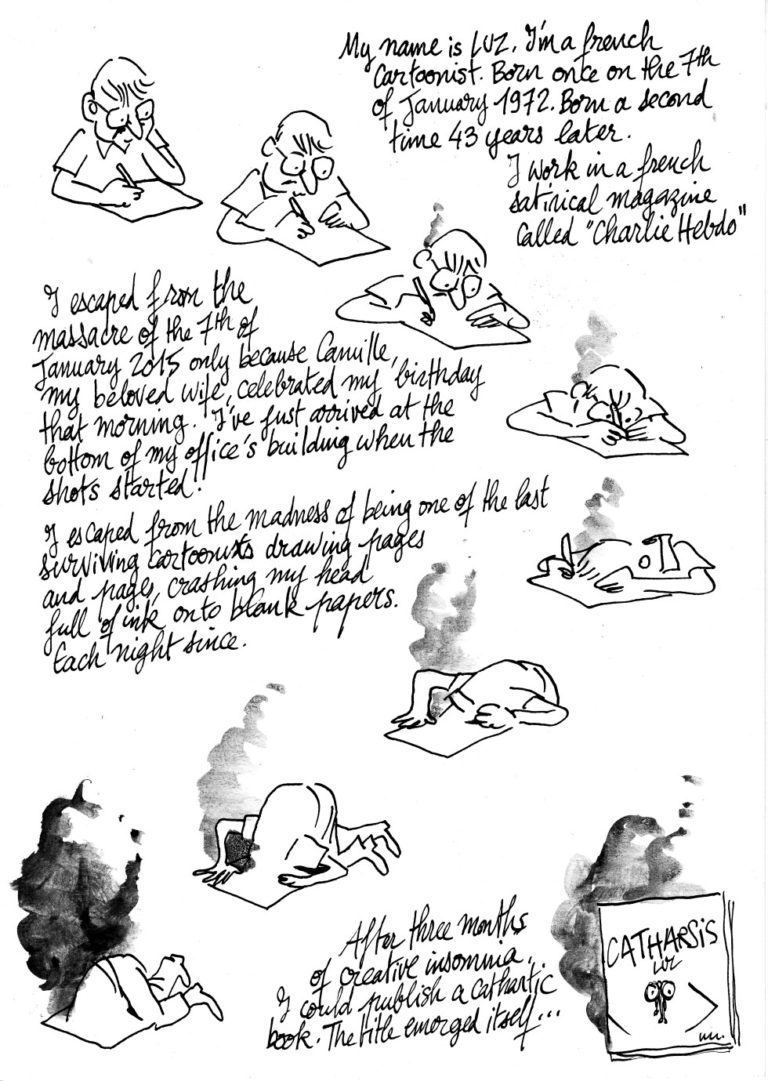 My name is LUZ. I'm a french
Cartoonist. Born once on the 7th
of January 1972. Born a second
time 43 years later.
I work in a french
satirical magazine
Called "Charlie Hebdo"
I escaped from the
massacre of the 7th of
January 2015 only because Camille,
my beloved wife, celebrated my birthday
that morning. I've just arrived at the
bottom of my office's building when the
shots started!
I escaped from the madness of being one of the last
surviving cartoonists drawing pages
and pages, crashing my head
full of ink onto blank papers.
Each night since.
After three months
of creative insomnia,
I could publish a cathartic
book. The title emerged itself...
CATHARSIS
LUZ